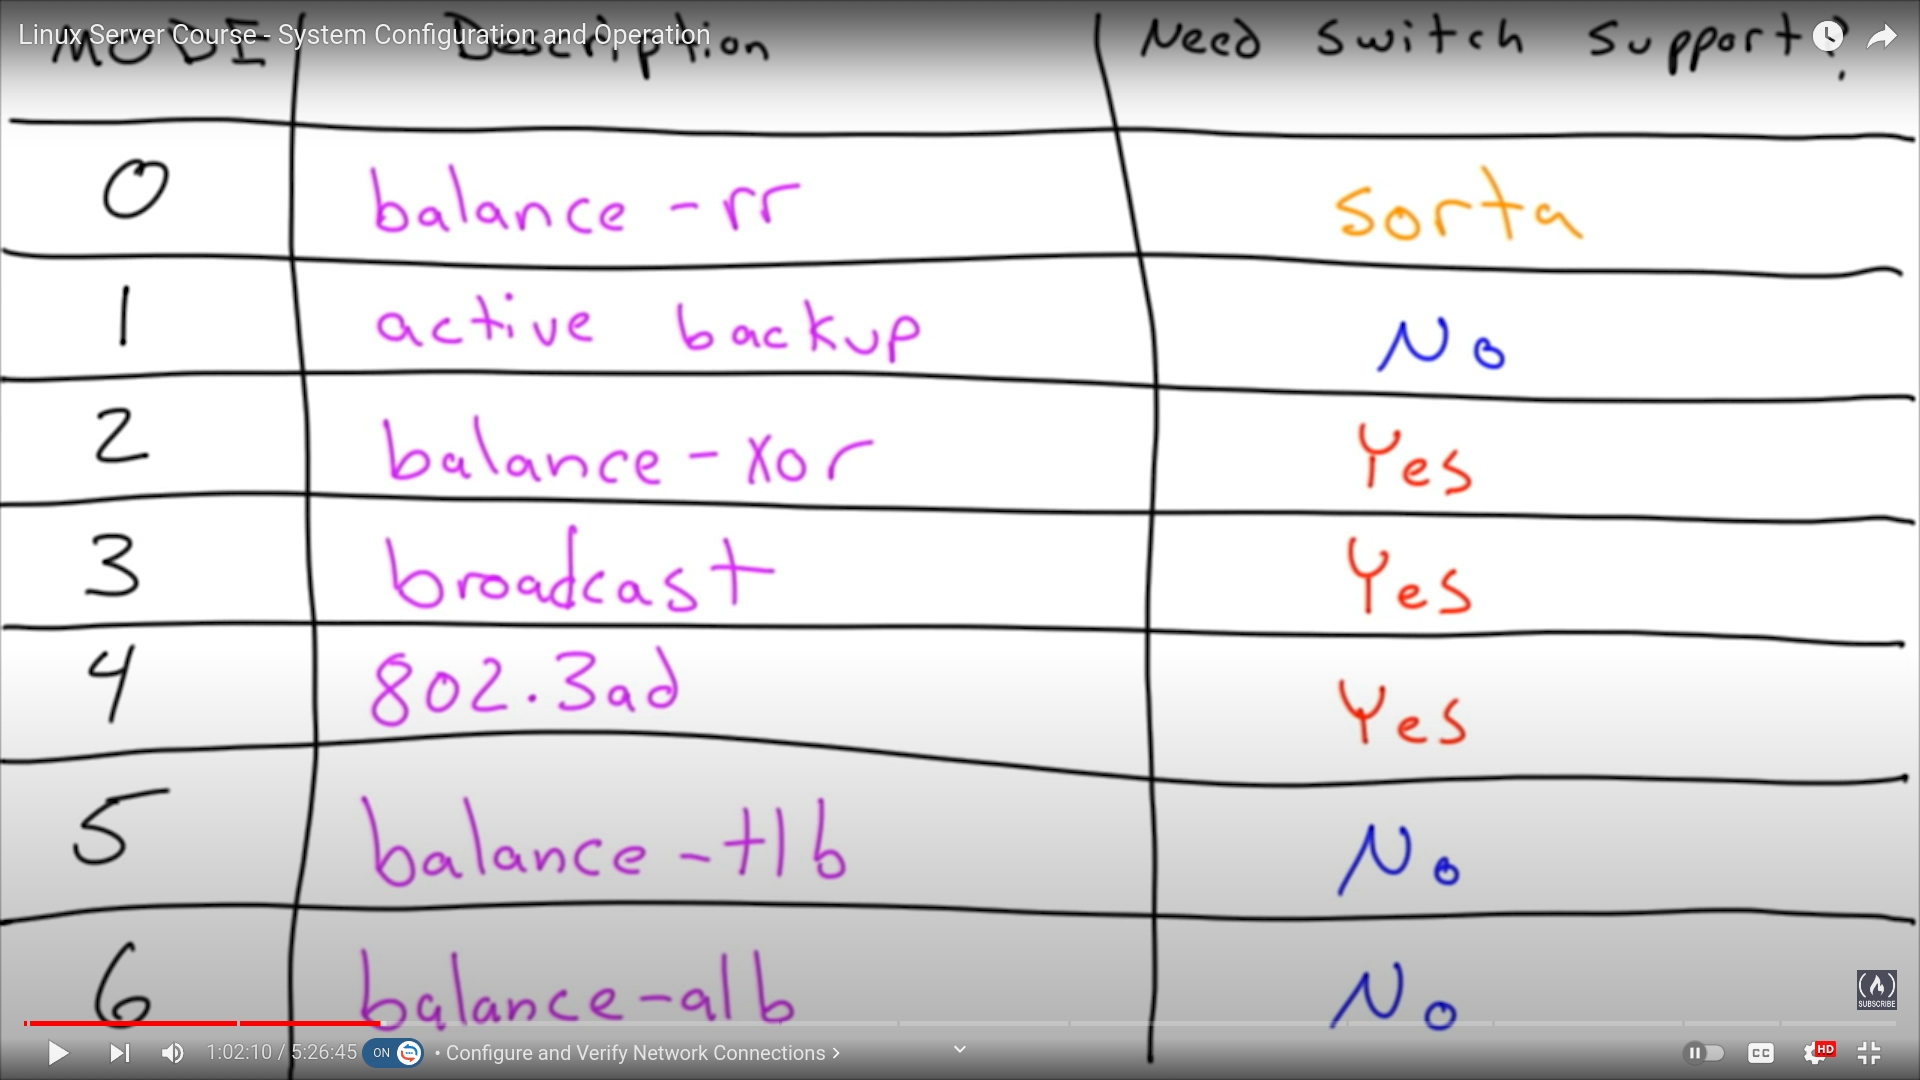 Linux Server Course - System Configuration and Operation
MODE Description Need Switch Support?
0 balance-rr sorta
1 active backup No
2 balance-xor Yes
3 broadcast Yes
4 802.3ad Yes
5 balance-tlb No
6 balance-alb No
SUBSCRIBE
1:02:10 / 5:26:45 ON • Configure and Verify Network Connections CC HD